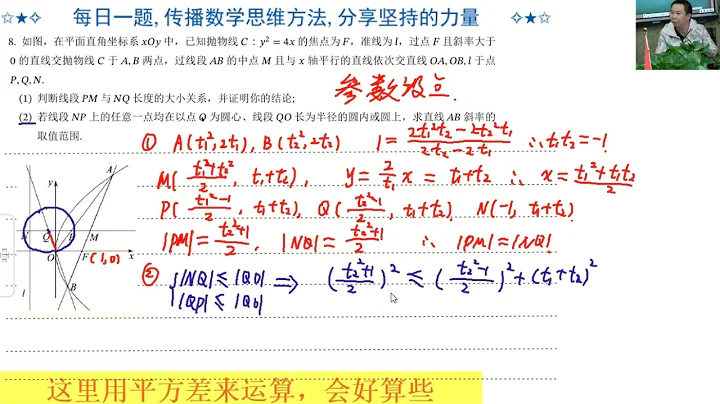 ✧★✧ 每日一题,传播数学思维方法,分享坚持的力量 ✧★✧
8. 如图，在平面直角坐标系 xOy 中，已知抛物线 C：y²＝4x 的焦点为 F，准线为 l，过点 F 且斜率大于
0 的直线交抛物线 C 于 A, B 两点，过线段 AB 的中点 M 且与 x 轴平行的直线依次交直线 OA, OB, l 于点
P, Q, N.
(1) 判断线段 PM 与 NQ 长度的大小关系，并证明你的结论；
(2) 若线段 NP 上的任意一点均在以点 Q 为圆心、线段 QO 长为半径的圆内或圆上，求直线 AB 斜率的
取值范围.
参数设立.
① A(t₁², 2t₁), B(t₂², 2t₂) 1 = (2t₁²t₂ − 2t₂²t₁)/(2t₂ − 2t₁) ∴ t₁t₂ = −1
M((t₁²+t₂²)/2, t₁+t₂), y = (2/t₁)x = t₁+t₂ ∴ x = (t₁²+t₁t₂)/2
P((t₁²−1)/2, t₁+t₂), Q((t₂²−1)/2, t₁+t₂), N(−1, t₁+t₂)
|PM| = (t₂²+1)/2, |NQ| = (t₂²+1)/2 ∴ |PM|=|NQ|
② { |NQ| ≤ |QO| ⇒ ((t₂²+1)/2)² ≤ ((t₂²−1)/2)² + (t₁+t₂)²
|QP| ≤ |QO|
y
A
Q
M
P
O
F
(1,0)
x
l
B
这里用平方差来运算，会好算些